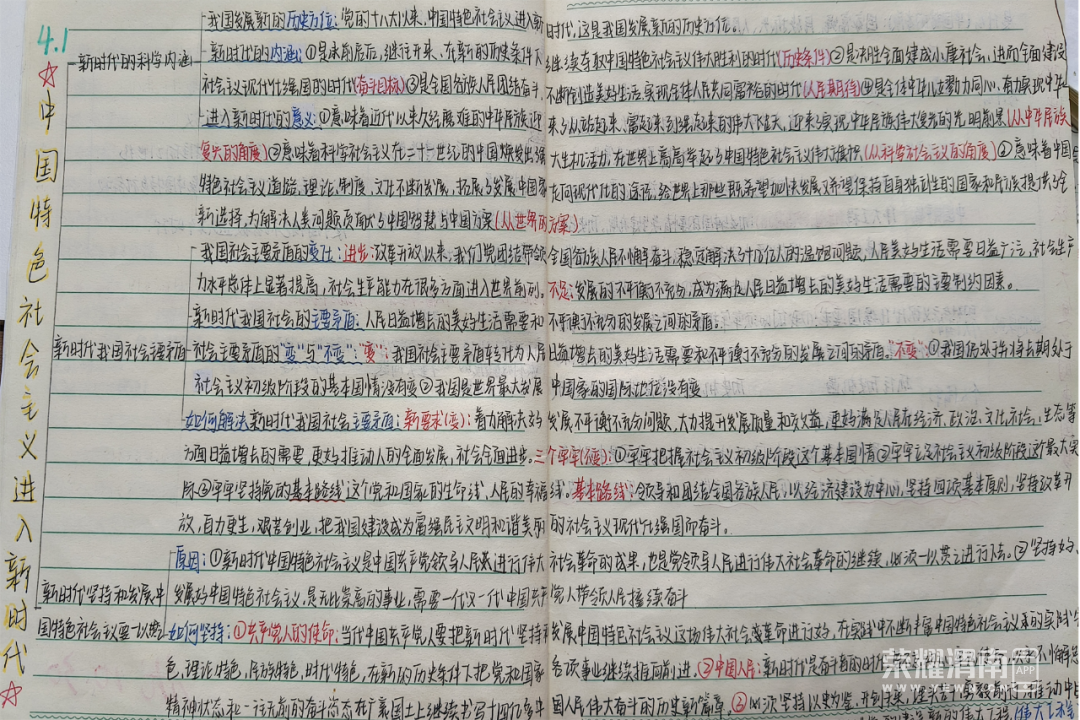 4.1
☆中国特色社会主义进入新时代☆
我国发展新的历史方位：党的十八大以来，中国特色社会主义进入新时代，这是我国发展新的历史方位。
新时代的科学内涵
新时代的内涵：①是承前启后，继往开来，在新的历史条件下继续夺取中国特色社会主义伟大胜利的时代（历史条件）②是决胜全面建成小康社会，进而全面建设
社会主义现代化强国的时代（奋斗目标）③是全国各族人民团结奋斗，不断创造美好生活，实现全体人民共同富裕的时代（人民期待）④是全体中华儿女勠力同心，奋力实现中华
进入新时代的意义：①意味着近代以来久经磨难的中华民族迎来了从站起来、富起来到强起来的伟大飞跃，迎来了实现中华民族伟大复兴的光明前景（从中华民族
复兴的角度）②意味着科学社会主义在二十一世纪的中国焕发出强大生机活力，在世界上高高举起了中国特色社会主义伟大旗帜（从科学社会主义的角度）③意味着中国
特色社会主义道路、理论、制度、文化不断发展，拓展了发展中国家走向现代化的途径，给世界上那些既希望加快发展又希望保持自身独立性的国家和民族提供了全
新选择，为解决人类问题贡献了中国智慧与中国方案（从世界的
我国社会主要矛盾的变化：进步：改革开放以来，我们党团结带领全国各族人民不懈奋斗，稳定解决了十几亿人的温饱问题，人民美好生活需要日益广泛，社会生产
力水平总体上显著提高，社会生产能力在很多方面进入世界前列。不足：发展的不平衡不充分，成为满足人民日益增长的美好生活需要的主要制约因素。
新时代我国社会的主要矛盾：人民日益增长的美好生活需要和不平衡不充分的发展之间的矛盾。
新时代我国社会主要矛盾
社会主要矛盾的“变”与“不变”：“变”：我国社会主要矛盾转化为人民日益增长的美好生活需要和不平衡不充分的发展之间的矛盾。“不变”：①我国仍处于并将长期处于
社会主义初级阶段的基本国情没有变②我国是世界最大发展中国家的国际地位没有变
如何解决新时代我国社会主要矛盾：新要求（变）：着力解决好发展不平衡不充分问题，大力提升发展质量和效益，更好满足人民在经济、政治、文化、社会、生态等
方面日益增长的需要，更好推动人的全面发展、社会全面进步。三个牢牢（不变）：①牢牢把握社会主义初级阶段这个基本国情②牢牢立足社会主义初级阶段这个最大实
际③牢牢坚持党的基本路线这个党和国家的生命线、人民的幸福线。基本路线：领导和团结全国各族人民，以经济建设为中心，坚持四项基本原则，坚持改革开
放，自力更生，艰苦创业，把我国建设成为富强民主文明和谐美丽的社会主义现代化强国而奋斗。
原因：①新时代中国特色社会主义是中国共产党领导人民进行伟大社会革命的成果，也是党领导人民进行伟大社会革命的继续，必须一以贯之进行下去。②坚持好、
新时代坚持和发展中
发展好中国特色社会主义，是无比崇高的事业，需要一代又一代中国共产党人带领人民接续奋斗
国特色社会主义要一以贯之
如何坚持：①共产党人的使命：当代中国共产党人要把新时代坚持和发展中国特色社会主义这场伟大社会革命进行好，在实践中不断丰富中国特色社会主义的实践特
色、理论特色、民族特色、时代特色，在新的历史条件下把党和国家各项事业继续推向前进。②中国人民：新时代是奋斗者的时代
精神状态和一往无前的奋斗姿态在广袤国土上继续书写十四亿多中国人民伟大奋斗的历史新篇章。③必须坚持以史为鉴、开创未来
荣耀渭南网
APP